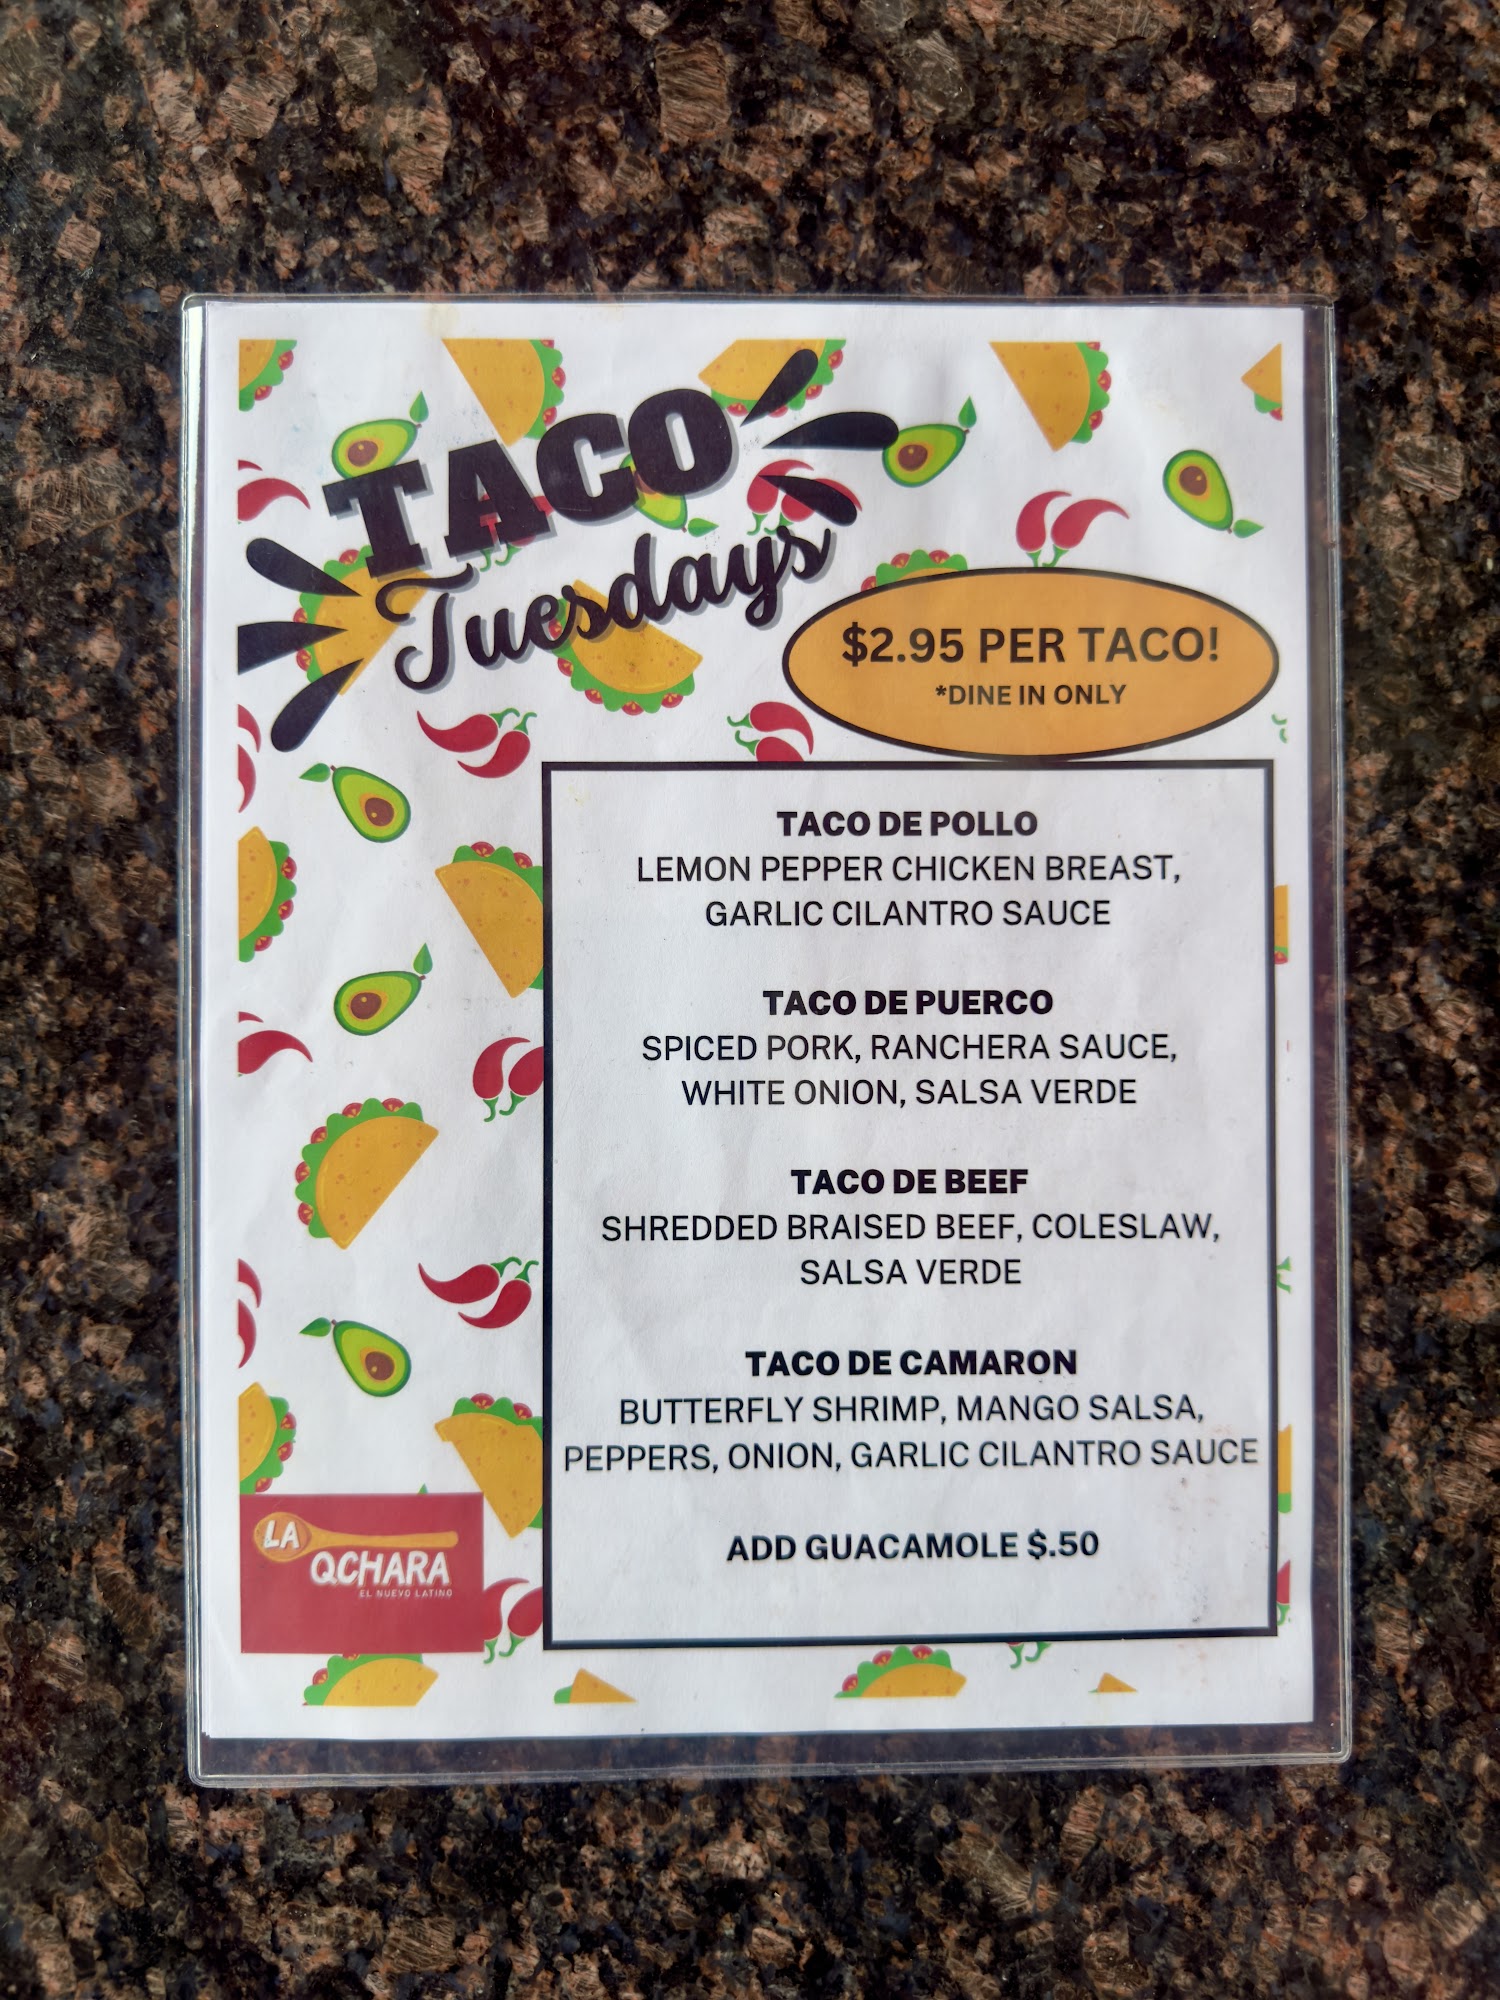 TACO
Tuesdays
$2.95 PER TACO!
*DINE IN ONLY
TACO DE POLLO
LEMON PEPPER CHICKEN BREAST,
GARLIC CILANTRO SAUCE
TACO DE PUERCO
SPICED PORK, RANCHERA SAUCE,
WHITE ONION, SALSA VERDE
TACO DE BEEF
SHREDDED BRAISED BEEF, COLESLAW,
SALSA VERDE
TACO DE CAMARON
BUTTERFLY SHRIMP, MANGO SALSA,
PEPPERS, ONION, GARLIC CILANTRO SAUCE
ADD GUACAMOLE $.50
LA
QCHARA
EL NUEVO LATINO